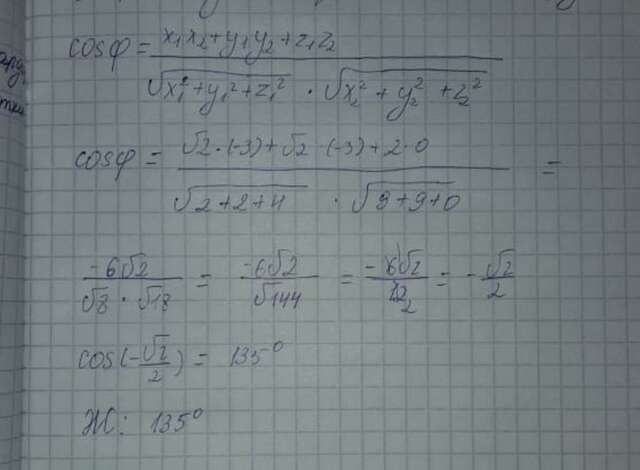 cosφ = x₁x₂+y₁y₂+z₁z₂ / √x₁²+y₁²+z₁² · √x₂²+y₂²+z₂²
cosφ = √2·(-3)+√2 (-3)+2·0 / √2+2+4 · √9+9+0 =
-6√2 / √8 · √18 = -6√2 / √144 = -6√2 / 12 2 = - √2 / 2
cos(-√2/2) = 135°
Ж: 135°